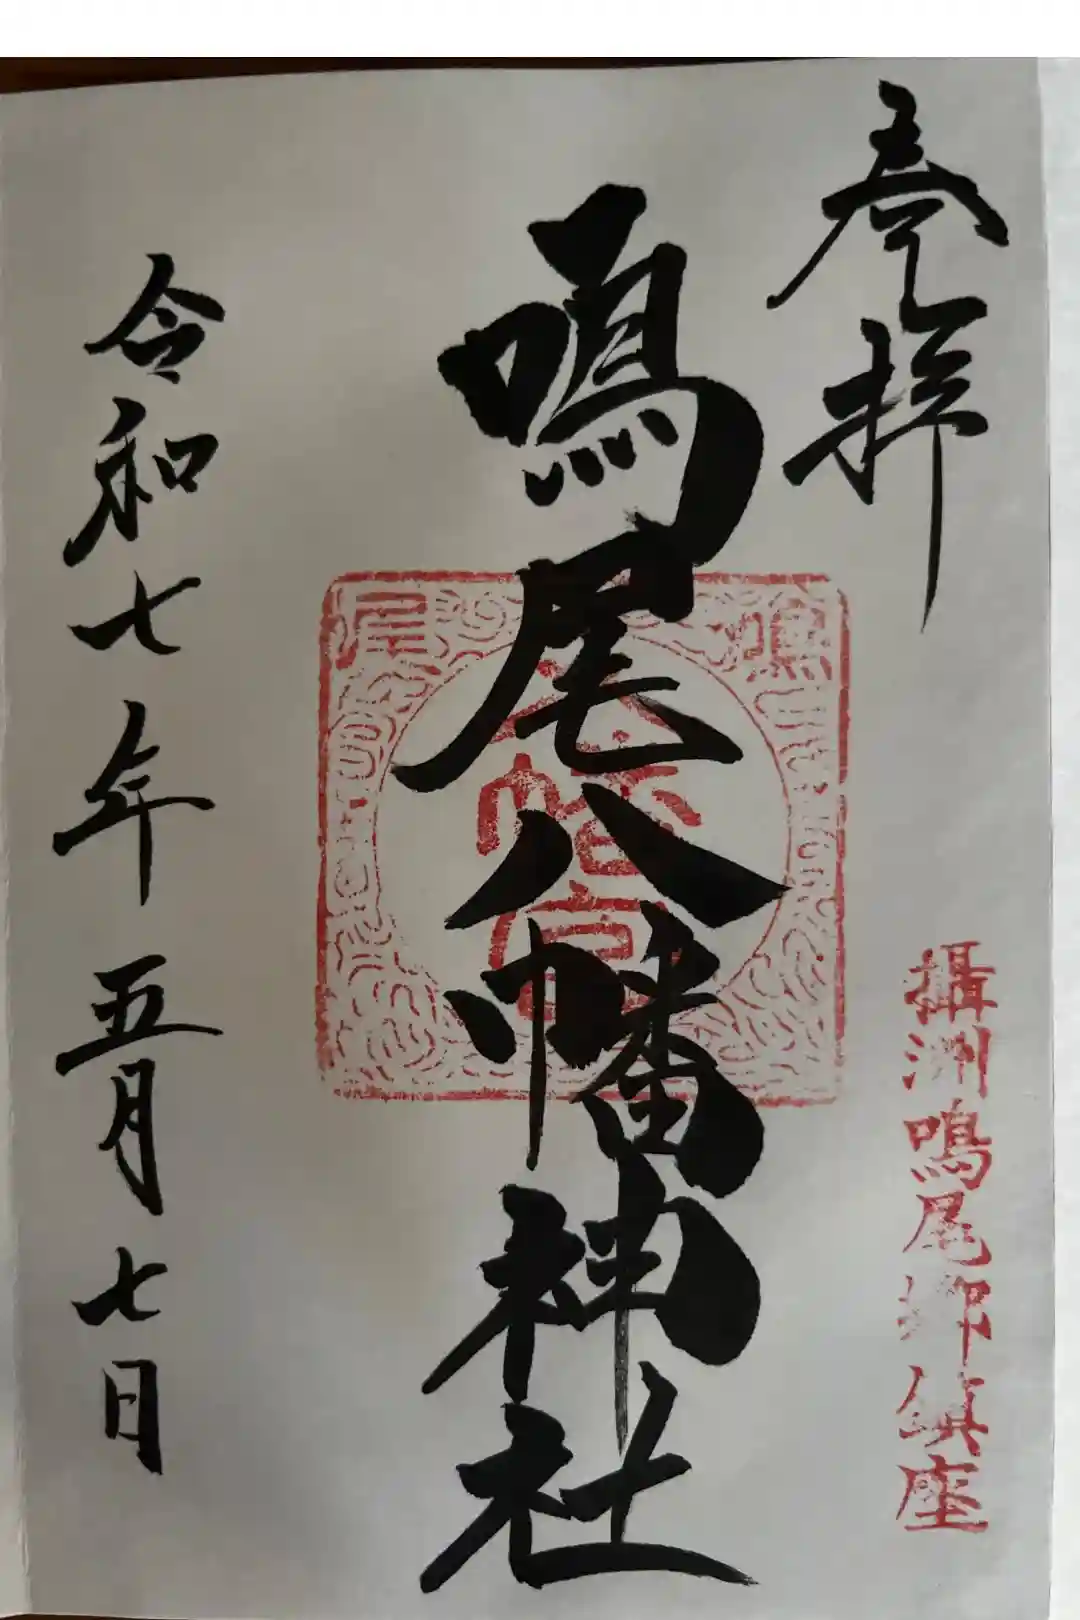 奉拝
攝洲鳴尾郷鎮座
鳴尾八幡神社
鳴尾
八幡宮
令和七年五月七日